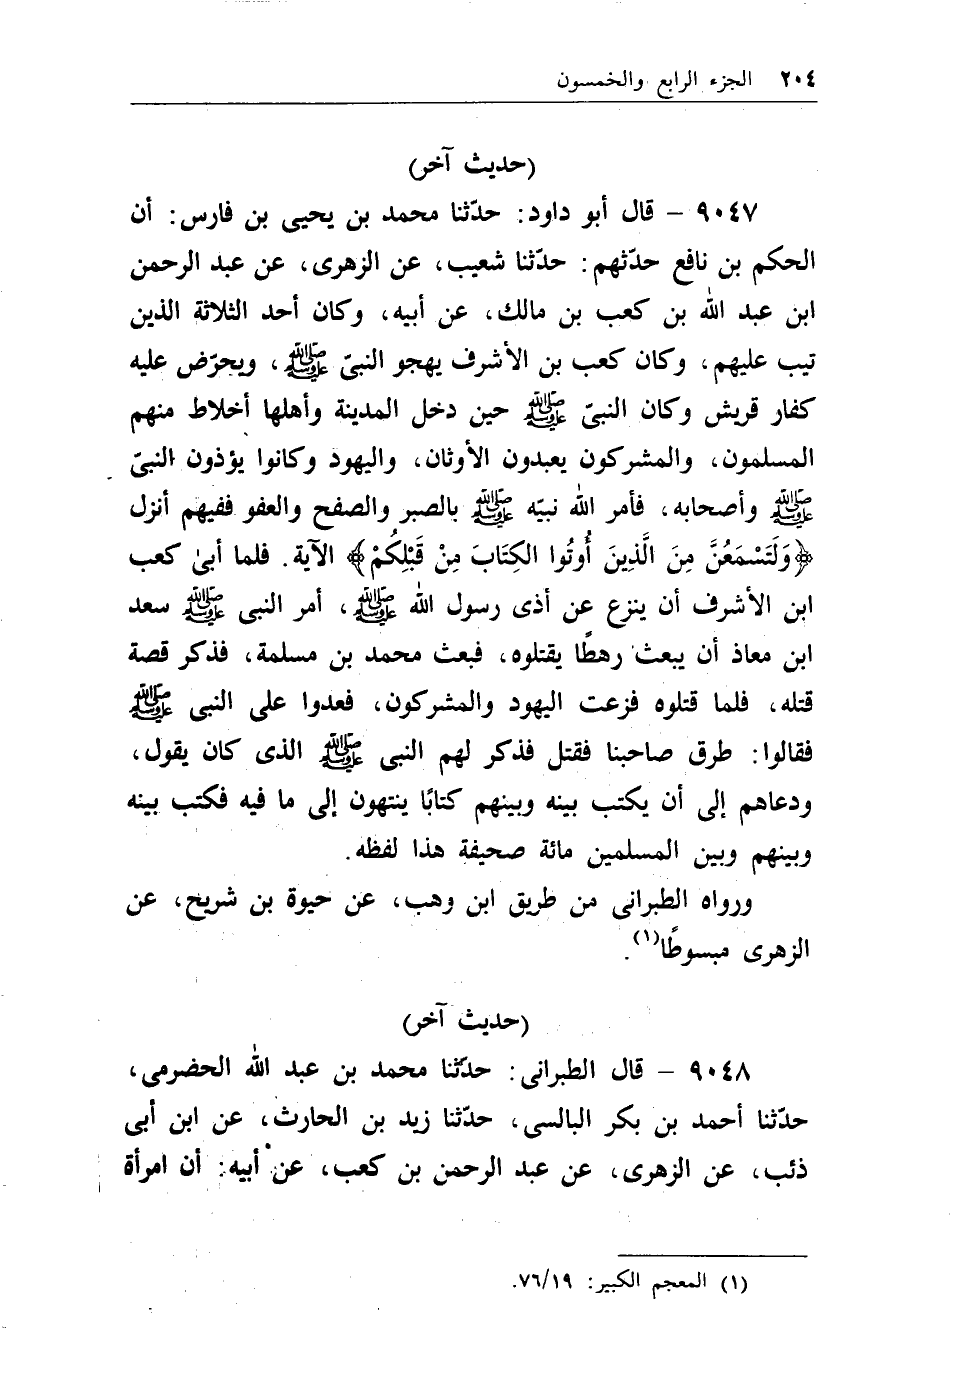 ٢٠٤ الجزء الرابع والخمسون
(حديث آخر)
٩٠٤٧ – قال أبو داود: حدّثنا محمد بن يحيى بن فارس: أن
الحكم بن نافع حدّثهم: حدّثنا شعيب، عن الزهرى، عن عبد الرحمن
ابن عبد الله بن كعب بن مالك، عن أبيه، وكان أحد الثلاثة الذين
تيب عليهم، وكان كعب بن الأشرف يهجو النبىّ ﷺ، ويحرّض عليه
كفار قريش وكان النبىّ ﷺ حين دخل المدينة وأهلها أخلاط منهم
المسلمون، والمشركون يعبدون الأوثان، واليهود وكانوا يؤذون النبىّ
ﷺ وأصحابه، فأمر الله نبيّه ﷺ بالصبر والصفح والعفو ففيهم أنزل
﴿وَلَتَسْمَعُنَّ مِنَ الَّذِينَ أُوتُوا الكِتَابَ مِنْ قَبْلِكُمْ﴾ الآية. فلما أبىٰ كعب
ابن الأشرف أن ينزع عن أذى رسول الله ﷺ، أمر النبى ﷺ سعد
ابن معاذ أن يبعث رهطًا يقتلوه، فبعث محمد بن مسلمة، فذكر قصة
قتله، فلما قتلوه فزعت اليهود والمشركون، فعدوا على النبى ﷺ
فقالوا: طرق صاحبنا فقتل فذكر لهم النبى ﷺ الذى كان يقول،
ودعاهم إلى أن يكتب بينه وبينهم كتابًا ينتهون إلى ما فيه فكتب بينه
وبينهم وبين المسلمين مائة صحيفة هذا لفظه.
ورواه الطبرانى من طريق ابن وهب، عن حيوة بن شريح، عن
الزهرى مبسوطًا(١).
(حديث آخر)
٩٠٤٨ – قال الطبرانى: حدّثنا محمد بن عبد الله الحضرمى،
حدّثنا أحمد بن بكر البالسى، حدّثنا زيد بن الحارث، عن ابن أبى
ذئب، عن الزهرى، عن عبد الرحمن بن كعب، عن أبيه: أن امرأة
(١) المعجم الكبير: ٧٦/١٩.